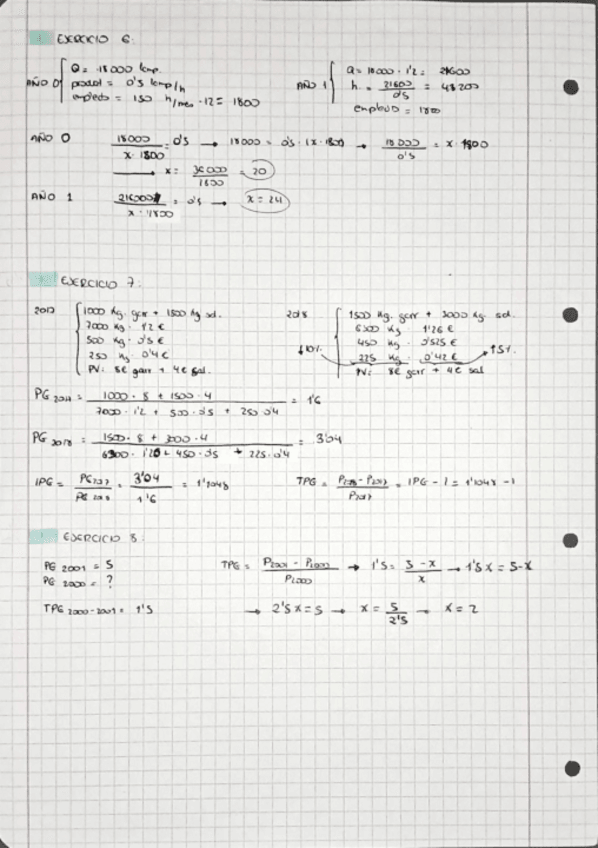 EJERCICIO 6:
AÑO 0 { Q = 18000 lamp.
prodad = 0's lamp/h
empleado = 150 h/mes · 12 = 1800
AÑO 1 { Q = 18000 · 1'2 = 21600
h. = 21600 / 0's = 43200
empleado = 1800
AÑO 0 18000 / x · 1800 = 0's → 18000 = 0's · (x · 1800) → 18000 / 0's = x · 1800
→ x = 36000 / 1800 = 20
AÑO 1 21600 / x · 1800 = 0's → x = 24
EJERCICIO 7:
2017 { 1000 kg. garr + 1500 kg sal.
7000 kg · 1'2 €
500 kg · 0's €
250 kg · 0'4 €
PV: 8€ garr + 4€ sal.
2018 { 1500 kg. garr + 3000 kg. sal.
6300 kg 1'26 €
450 kg. 0'525 €
↓10% 225 kg. 0'42 € ↑5%
PV: 8€ garr + 4€ sal
PG = 1000 · 8 + 1500 · 4 / 7000 · 1'2 + 500 · 0's + 250 · 0'4 = 1'6
PG 2018 = 1500 · 8 + 3000 · 4 / 6300 · 1'26 + 450 · 0's + 225 · 0'4 = 3'04
IPG = = 3'04 / 1'6 =
TPG = = IPG - 1 = - 1
EJERCICIO 8:
PG 2001 = 5
PG 2000 = ?
TPG 2000-2001 = 1's
TPG = P2001 - P2000 / P2000 → 1's = 5 - x / x → 1's x = 5 - x
→ 2's x = 5 → x = 5 / 2's → x = 2